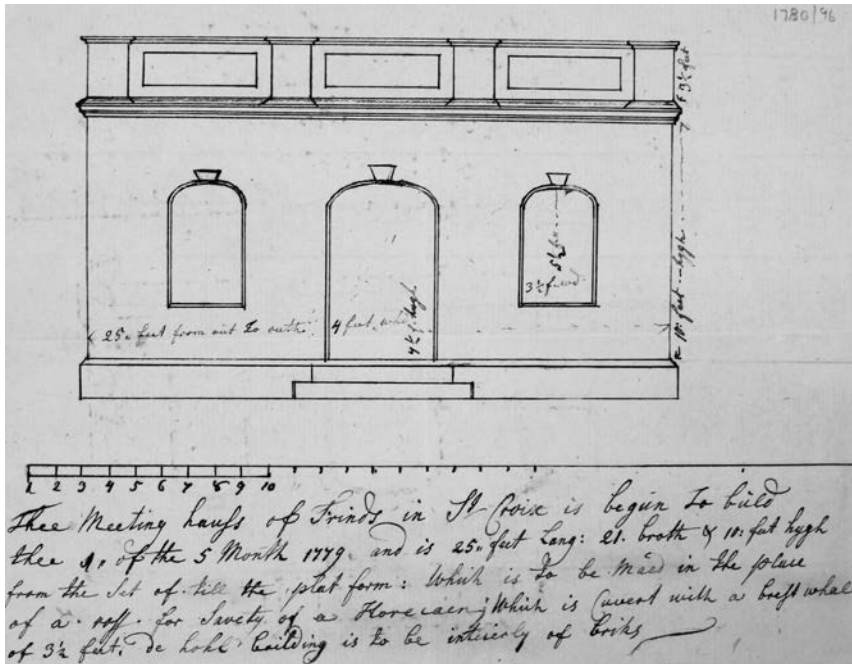 1780/96
3½ feet
10: feet hygh
5½ fu
3½ fu wid
25„ feet from out To outh
4 feet, whid
7½ f: hygh
1 2 3 4 5 6 7 8 9 10
Thee Meeting haufs of Frinds in St Croix is begun To buld
thee 1„ of the 5 Month 1779. and is 25„ feet Lang: 21. broth & 10: fut hygh
from the Set of till the plat form: Which is To be Maed in the place
of a roff for Savety of a Horecaen; Which is Cuvert with a brest whal
of 3½ feet. de hohl building is to be intierly of briks